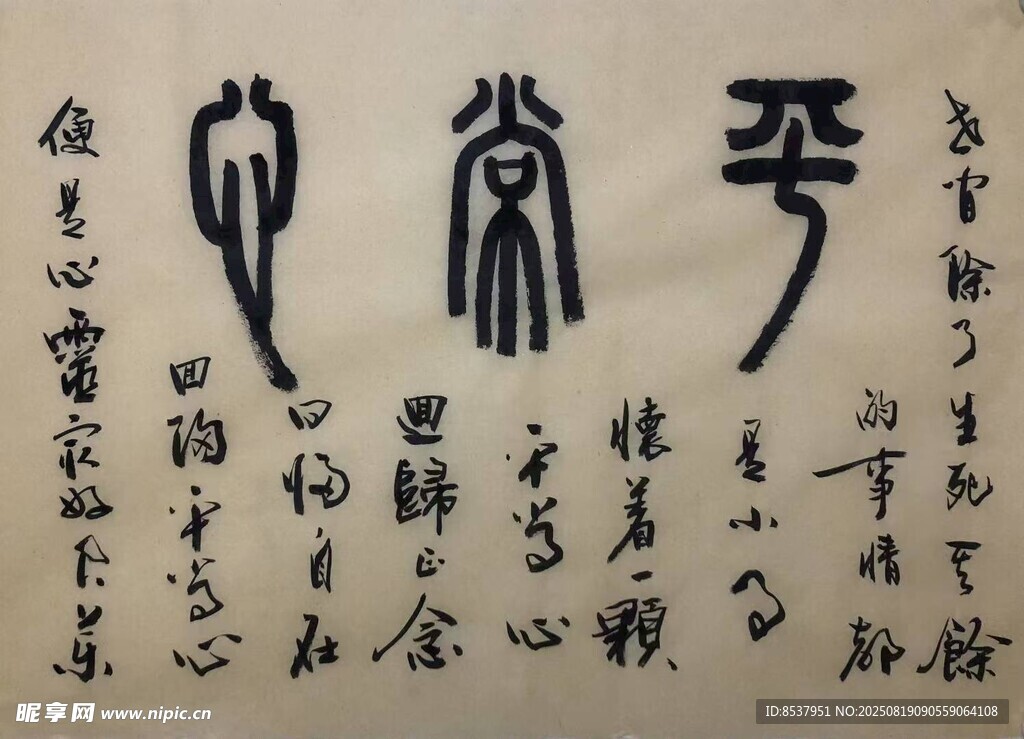 平常心
世間除了生死其餘
的事情都
是小事
懷着一顆
平常心
迴歸正念
回歸自在
回歸平常心
便是心靈最好良藥
昵享网 www.nipic.cn
ID:8537951 NO:20250819090559064108